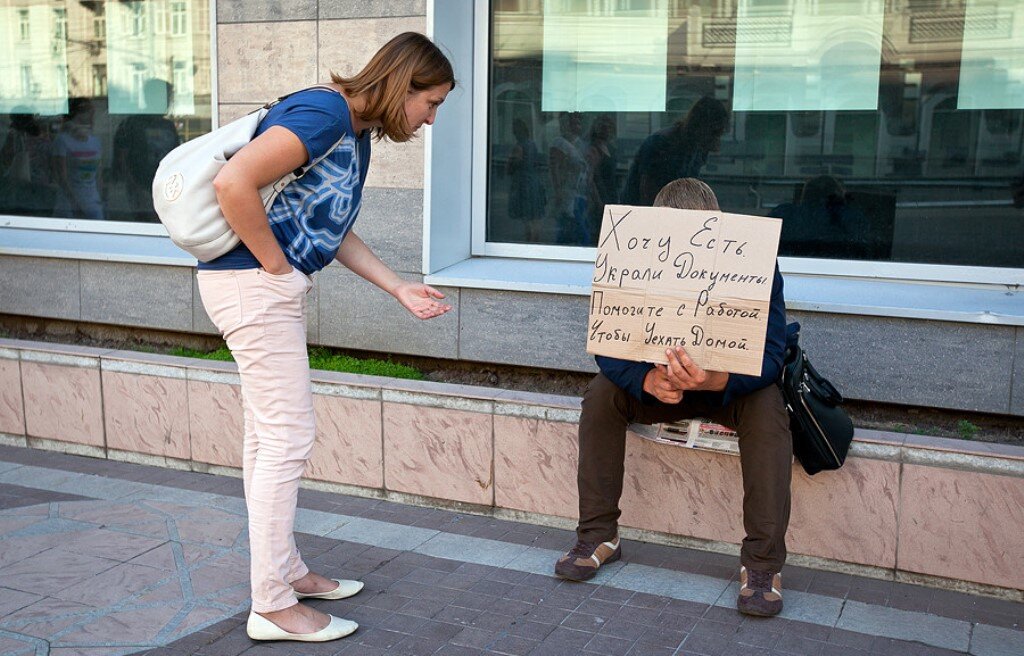 Хочу Есть.
Украли Документы
Помогите с Работой.
Чтобы Уехать Домой.